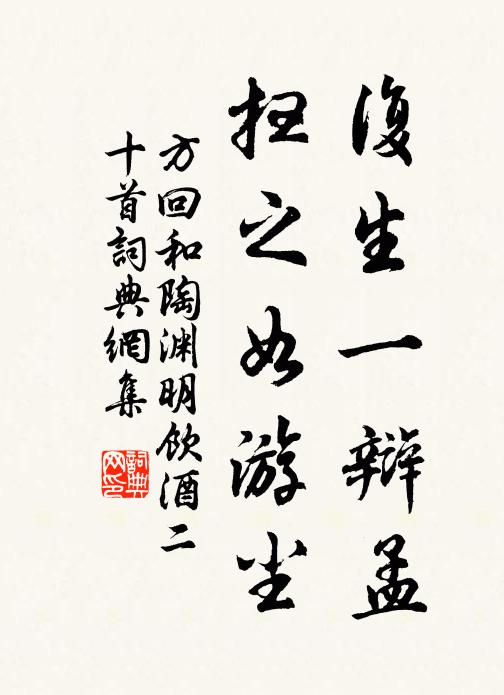 復生一辯孟
扫之如游尘
方回和陶渊明飲酒二
十首詞典網集
詞典
网印